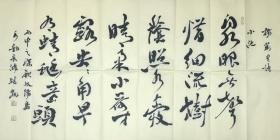 楊萬里詩
小池
泉眼無聲
惜細流樹
陰照水愛
晴柔小荷才
露尖尖角早
有蜻蜓立上頭